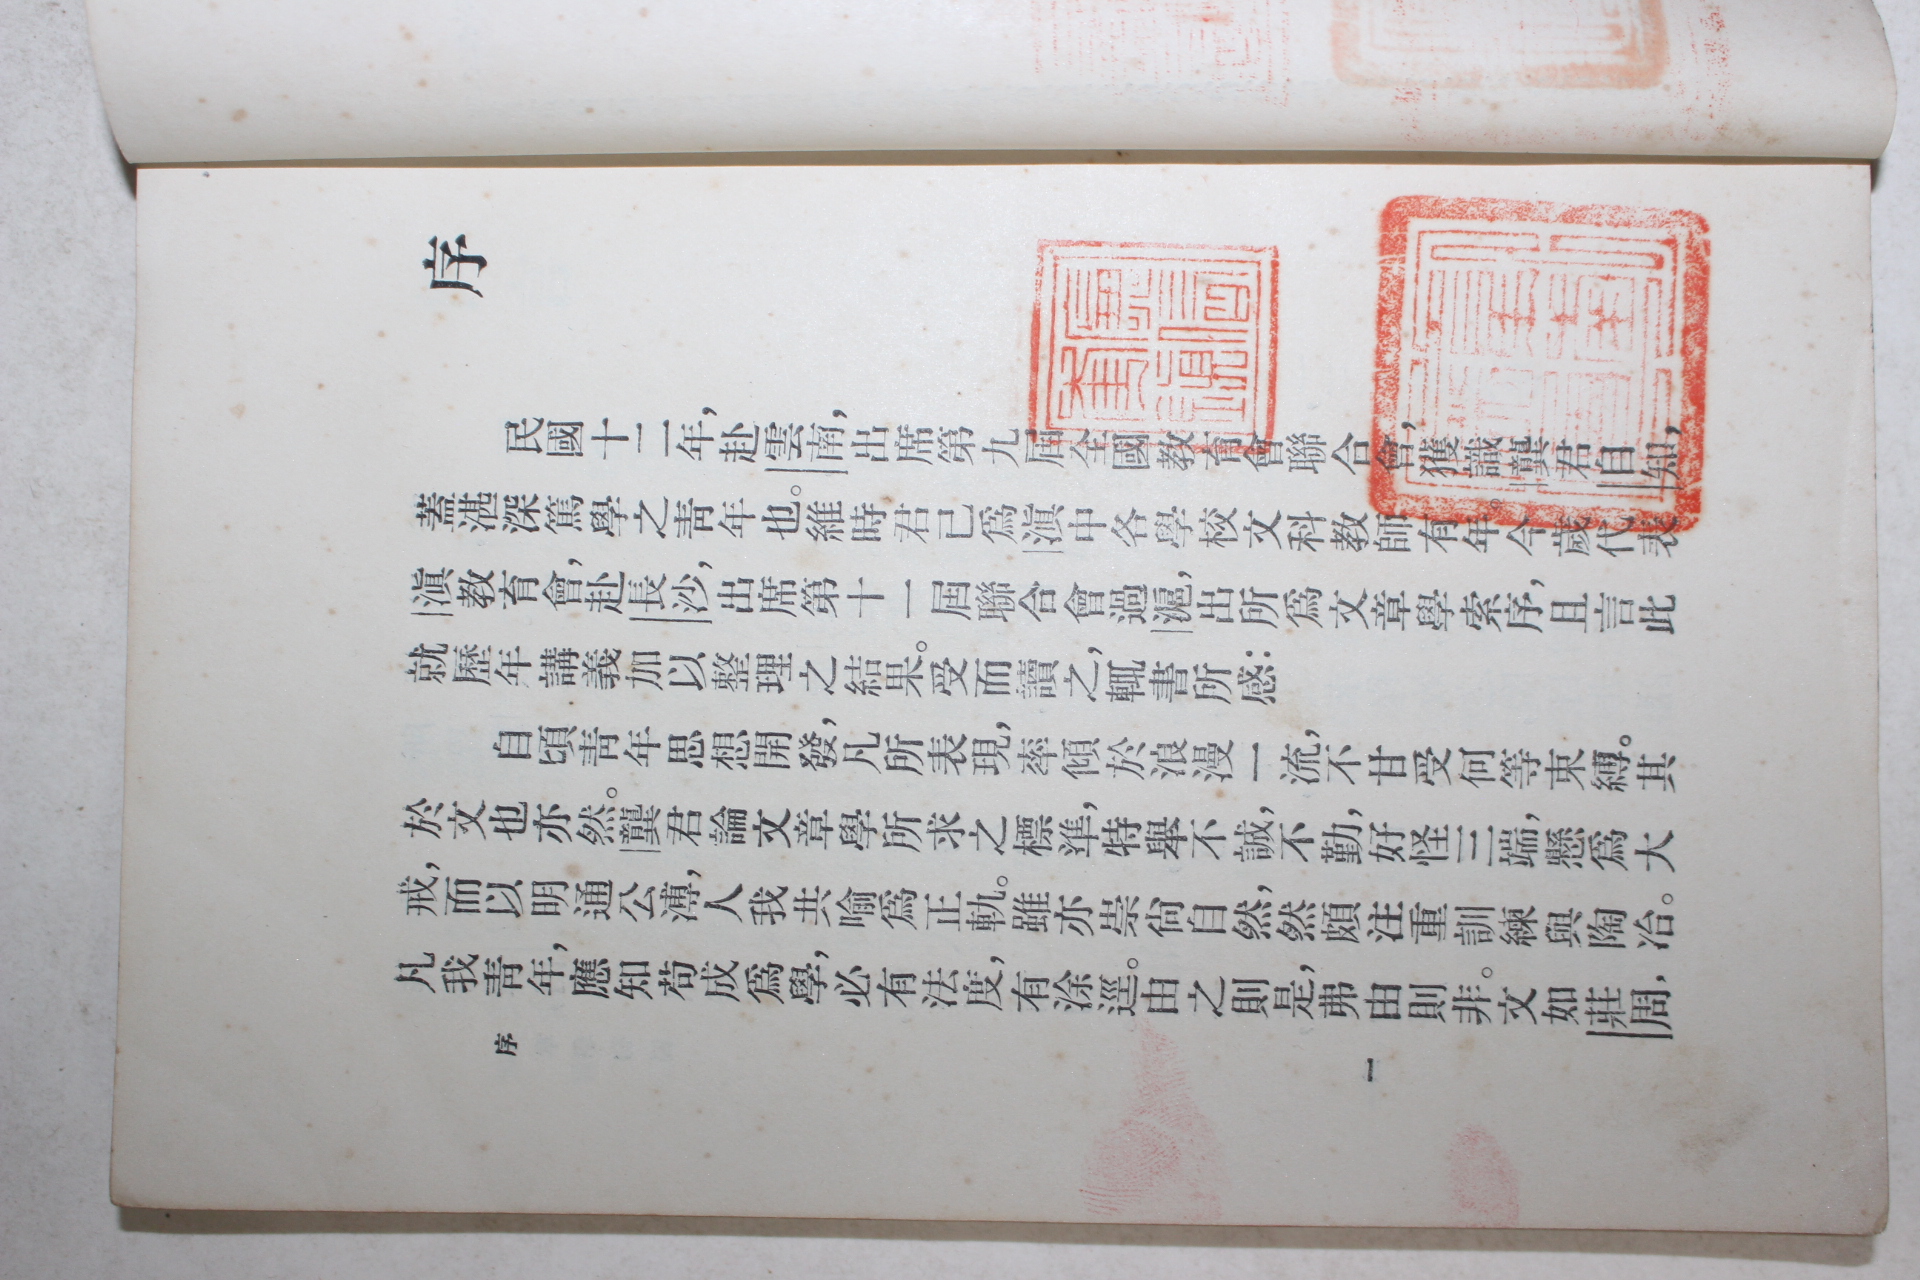 序
民國十二年，赴雲南，出席第九屆全國教育會聯合會，獲識龔君自知，
蓋湛深篤學之靑年也。維時君已爲滇中各學校文科教師有年。今歲代表
滇教育會，赴長沙，出席第十一屆聯合會過滬，出所爲文章學索序，且言此
就歷年講義加以整理之結果。受而讀之，輒書所感：
自頃靑年思想開發，凡所表現，率傾於浪漫一流，不甘受何等束縛。其
於文也亦然。龔君論文章學所求之標準，特舉不誠，不勤，好怪三端，懸爲大
戒，而以明通公溥，人我共喻爲正軌。雖亦崇尙自然，然頗注重訓練與陶冶。
凡我靑年，應知苟成爲學，必有法度，有涂逕。由之則是，弗由則非。文如莊周，
序
一